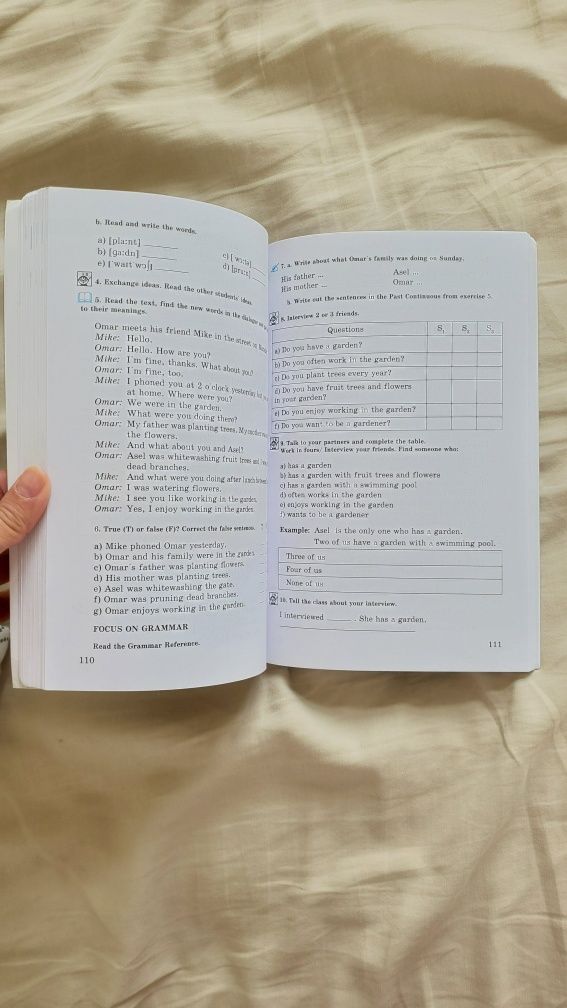 b. Read and write the words.
a) [pla:nt] ______
b) [ga:dn] ______
c) ['wɔ:tə] ______
d) [pru:n] ______
e) ['waɪt wɔʃ] ______
4. Exchange ideas. Read the other students' ideas.
5. Read the text, find the new words in the dialogue
to their meanings.
Omar meets his friend Mike in the street on
Mike: Hello.
Omar: Hello. How are you?
Mike: I'm fine, thanks. What about you?
Omar: I'm fine, too.
Mike: I phoned you at 2 o'clock yesterday but
at home. Where were you?
Omar: We were in the garden.
Mike: What were you doing there?
Omar: My father was planting trees. My mother
the flowers.
Mike: And what about you and Asel?
Omar: Asel was whitewashing fruit trees and
dead branches.
Mike: And what were you doing after lunch
Omar: I was watering flowers.
Mike: I see you like working in the garden.
Omar: Yes, I enjoy working in the garden.
6. True (T) or false (F)? Correct the false sentences.
a) Mike phoned Omar yesterday.
b) Omar and his family were in the garden.
c) Omar's father was planting flowers.
d) His mother was planting trees.
e) Asel was whitewashing the gate.
f) Omar was pruning dead branches.
g) Omar enjoys working in the garden.
FOCUS ON GRAMMAR
Read the Grammar Reference.
110
7. a. Write about what Omar's family was doing on Sunday.
His father ... Asel ...
His mother ... Omar ...
b. Write out the sentences in the Past Continuous from exercise 5.
8. Interview 2 or 3 friends.
Questions S₁ S₂ S₃
a) Do you have a garden?
b) Do you often work in the garden?
c) Do you plant trees every year?
d) Do you have fruit trees and flowers
in your garden?
e) Do you enjoy working in the garden?
f) Do you want to be a gardener?
9. Talk to your partners and complete the table.
Work in fours/ Interview your friends. Find someone who:
a) has a garden
b) has a garden with fruit trees and flowers
c) has a garden with a swimming pool
d) often works in the garden
e) enjoys working in the garden
f) wants to be a gardener
Example: Asel is the only one who has a garden.
Two of us have a garden with a swimming pool.
Three of us
Four of us
None of us
10. Tell the class about your interview.
I interviewed ______ . She has a garden.
111